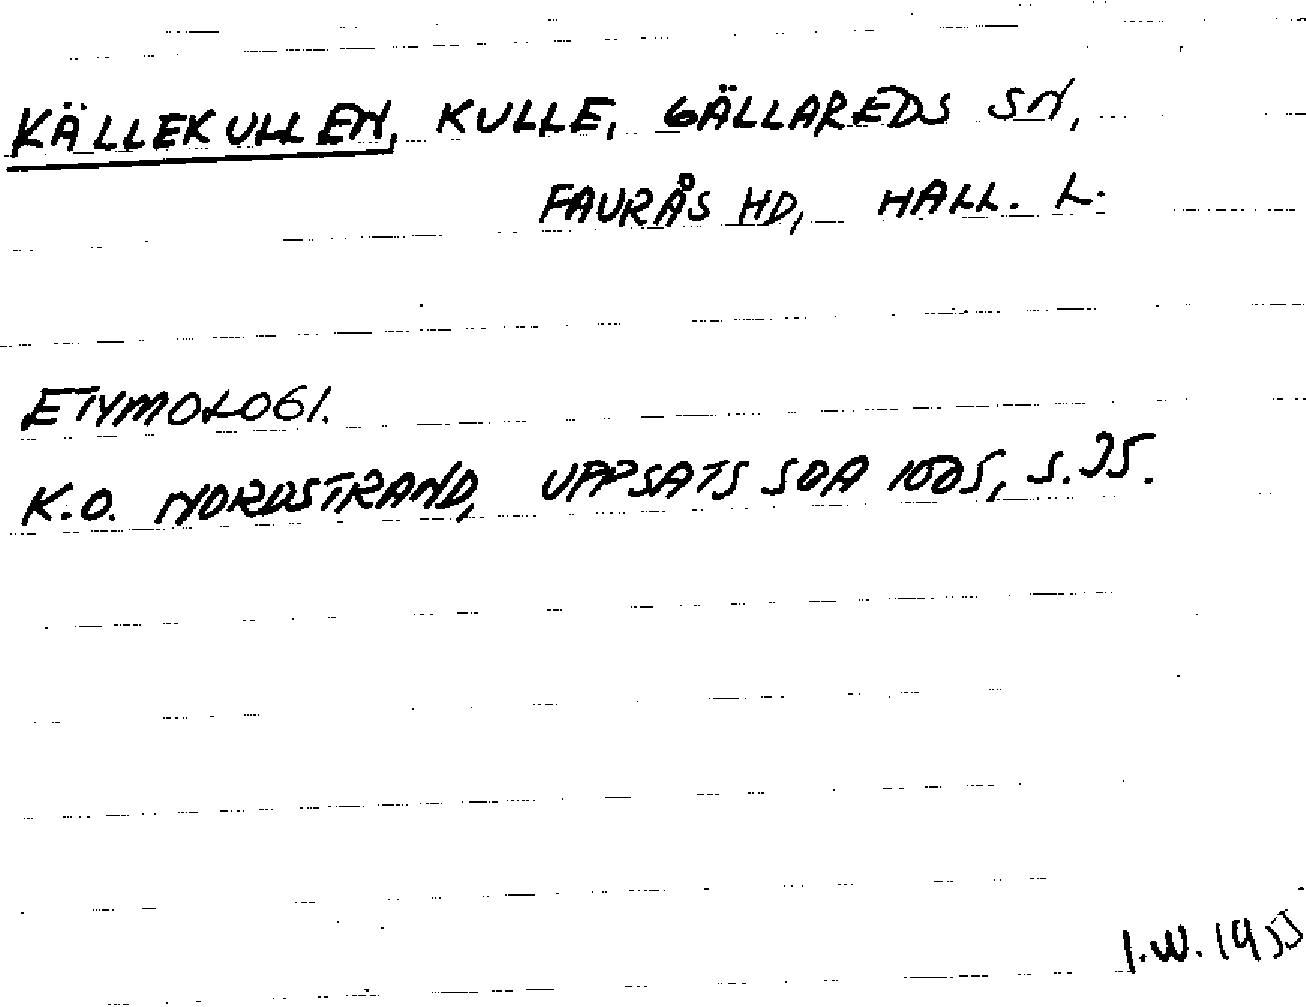 KÄLLEKULLEN, KULLE, GÄLLAREDS SN,
FAURÅS HD, HALL. L.
ETYMOLOGI.
K.O. NORDSTRAND, UPPSATS SOA
I.W.